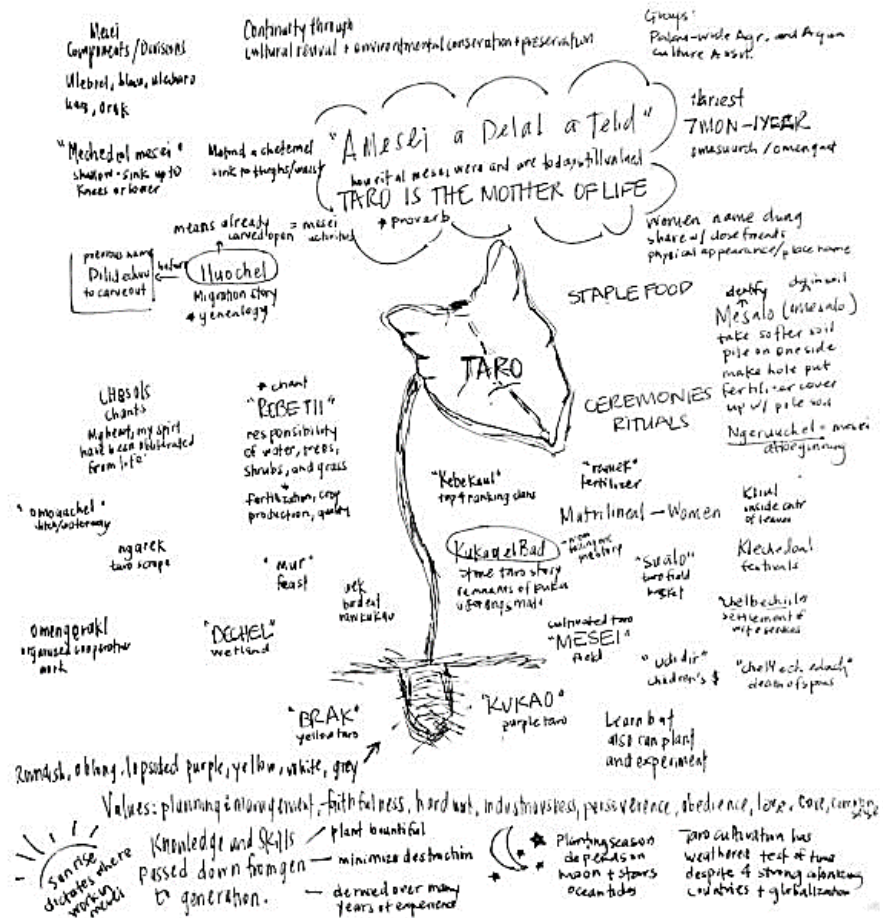 Mesei
Components/Divisions
Ulebrel, blau, uleboro
uas, orak
Continuity through
cultural revival + environmental conservation + preservation
Groups:
Palau-wide Agr. and Aqua
culture Assoc.
"Mechedral mesei"
shallow - sink up to
knees or lower
sink to thighs/waist
"A Mesei a Delal a Telid"
how vital mesei were and are today, still valued
TARO IS THE MOTHER OF LIFE
* proverb
Harvest
7MON-1YEAR
omasuurch / omengaat
means already
carved open = mesei
activities
previous name
to carve out
before
Iluochel
Migration story
+ genealogy
women name dung
share w/ close friends
physical appearance/place name
STAPLE FOOD
identify
dig in soil
Mesalo (omesalo)
take softer soil
pile on one side
make hole put
fertilizer cover
up w/ pile soil
TARO
CEREMONIES
RITUALS
Ngeruuchel = mesei
at beginning
CHESOLS
chants
My heart, my spirit
have been obliterated
from life'
* chant
"REBETII"
responsibility
of water, trees,
shrubs, and grass
fertilization, crop
production, quality
"Kebekuul"
top 4 ranking clans
"ramek"
fertilizer
Matrilineal - Women
inside cntr
of leaves
"omouachel"
ditch/waterway
ngarek
taro scrape
"mur"
feast
Kukau el Bad
stone taro story
remnants of kukau
"Sualo"
taro field
basket
Klechedaol
festivals
"chelbechiil"
settlement of
wife services
omengerakl
organized cooperative
work
"DECHEL"
wetland
raw kukau
cultivated taro
"MESEI"
field
"udidir"
children's $
"chell ech edach"
death of spous
"BRAK"
yellow taro
"KUKAO"
purple taro
Learn but
also can plant
and experiment
Roundish, oblong, lopsided purple, yellow, white, grey
Values: planning & management, faithfulness, hard work, industriousness, perseverence, obedience, love, care, common sense
Sun rise
dictates where
work in
mesei
Knowledge and Skills
passed down from gen
to generation.
plant bountiful
minimize destruction
derived over many
years of experience
Planting season
depends on
moon + stars
ocean tides
Taro cultivation has
weathered test of time
despite 4 strong colonizing
countries + globalization